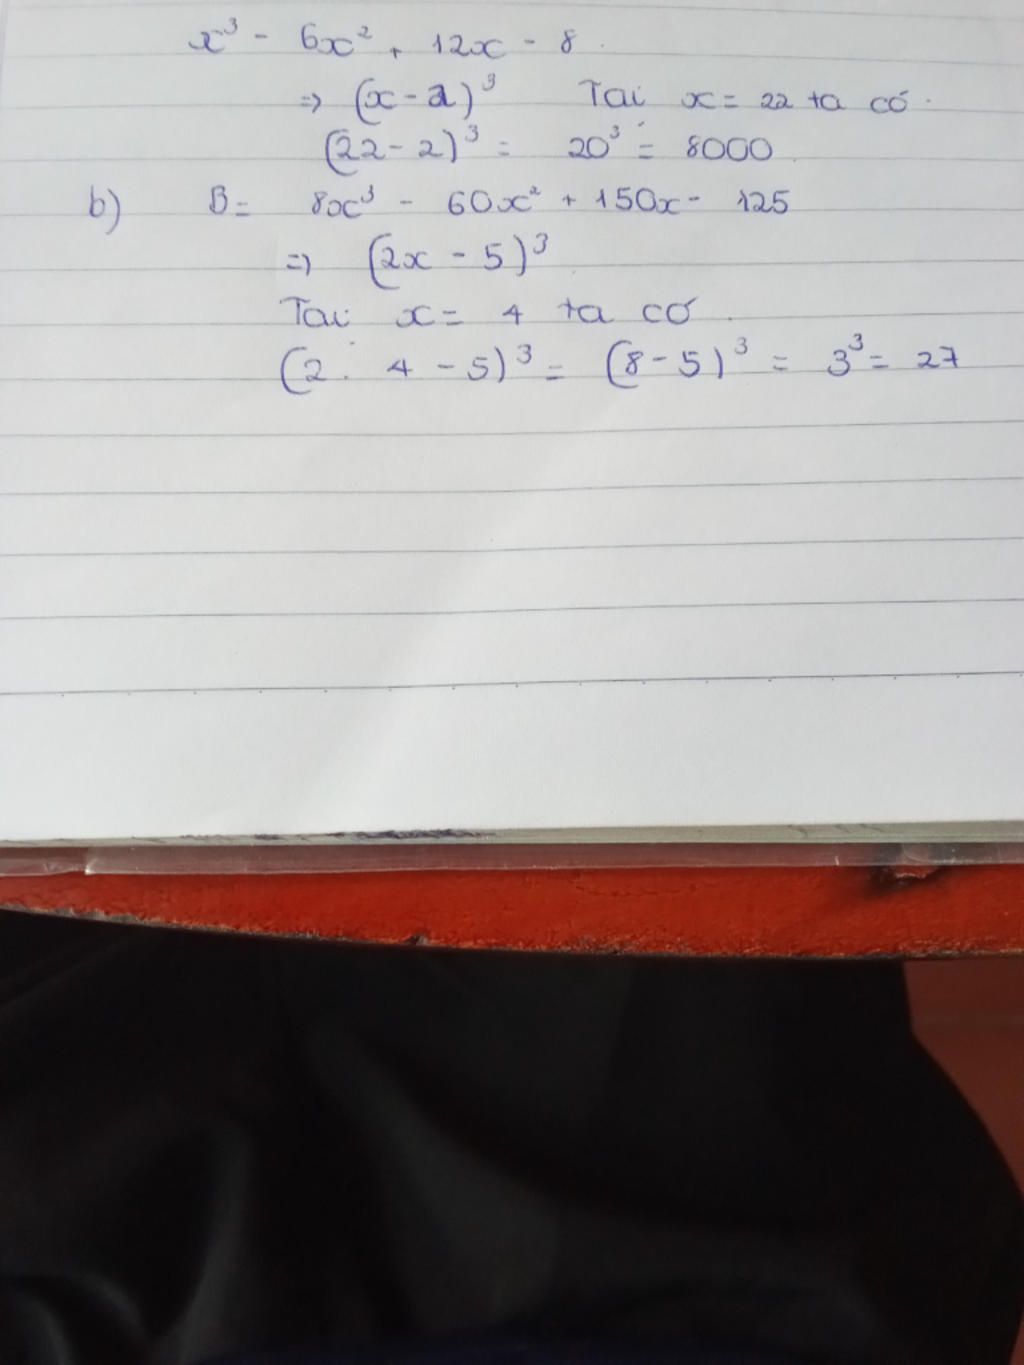 x³ - 6x² + 12x - 8.
=> (x - 2)³ Tại x = 22 ta có.
(22 - 2)³ = 20³ = 8000
b) B = 8x³ - 60x² + 150x - 125
=> (2x - 5)³
Tại x = 4 ta có.
(2. 4 - 5)³ = (8 - 5)³ = 3³ = 27